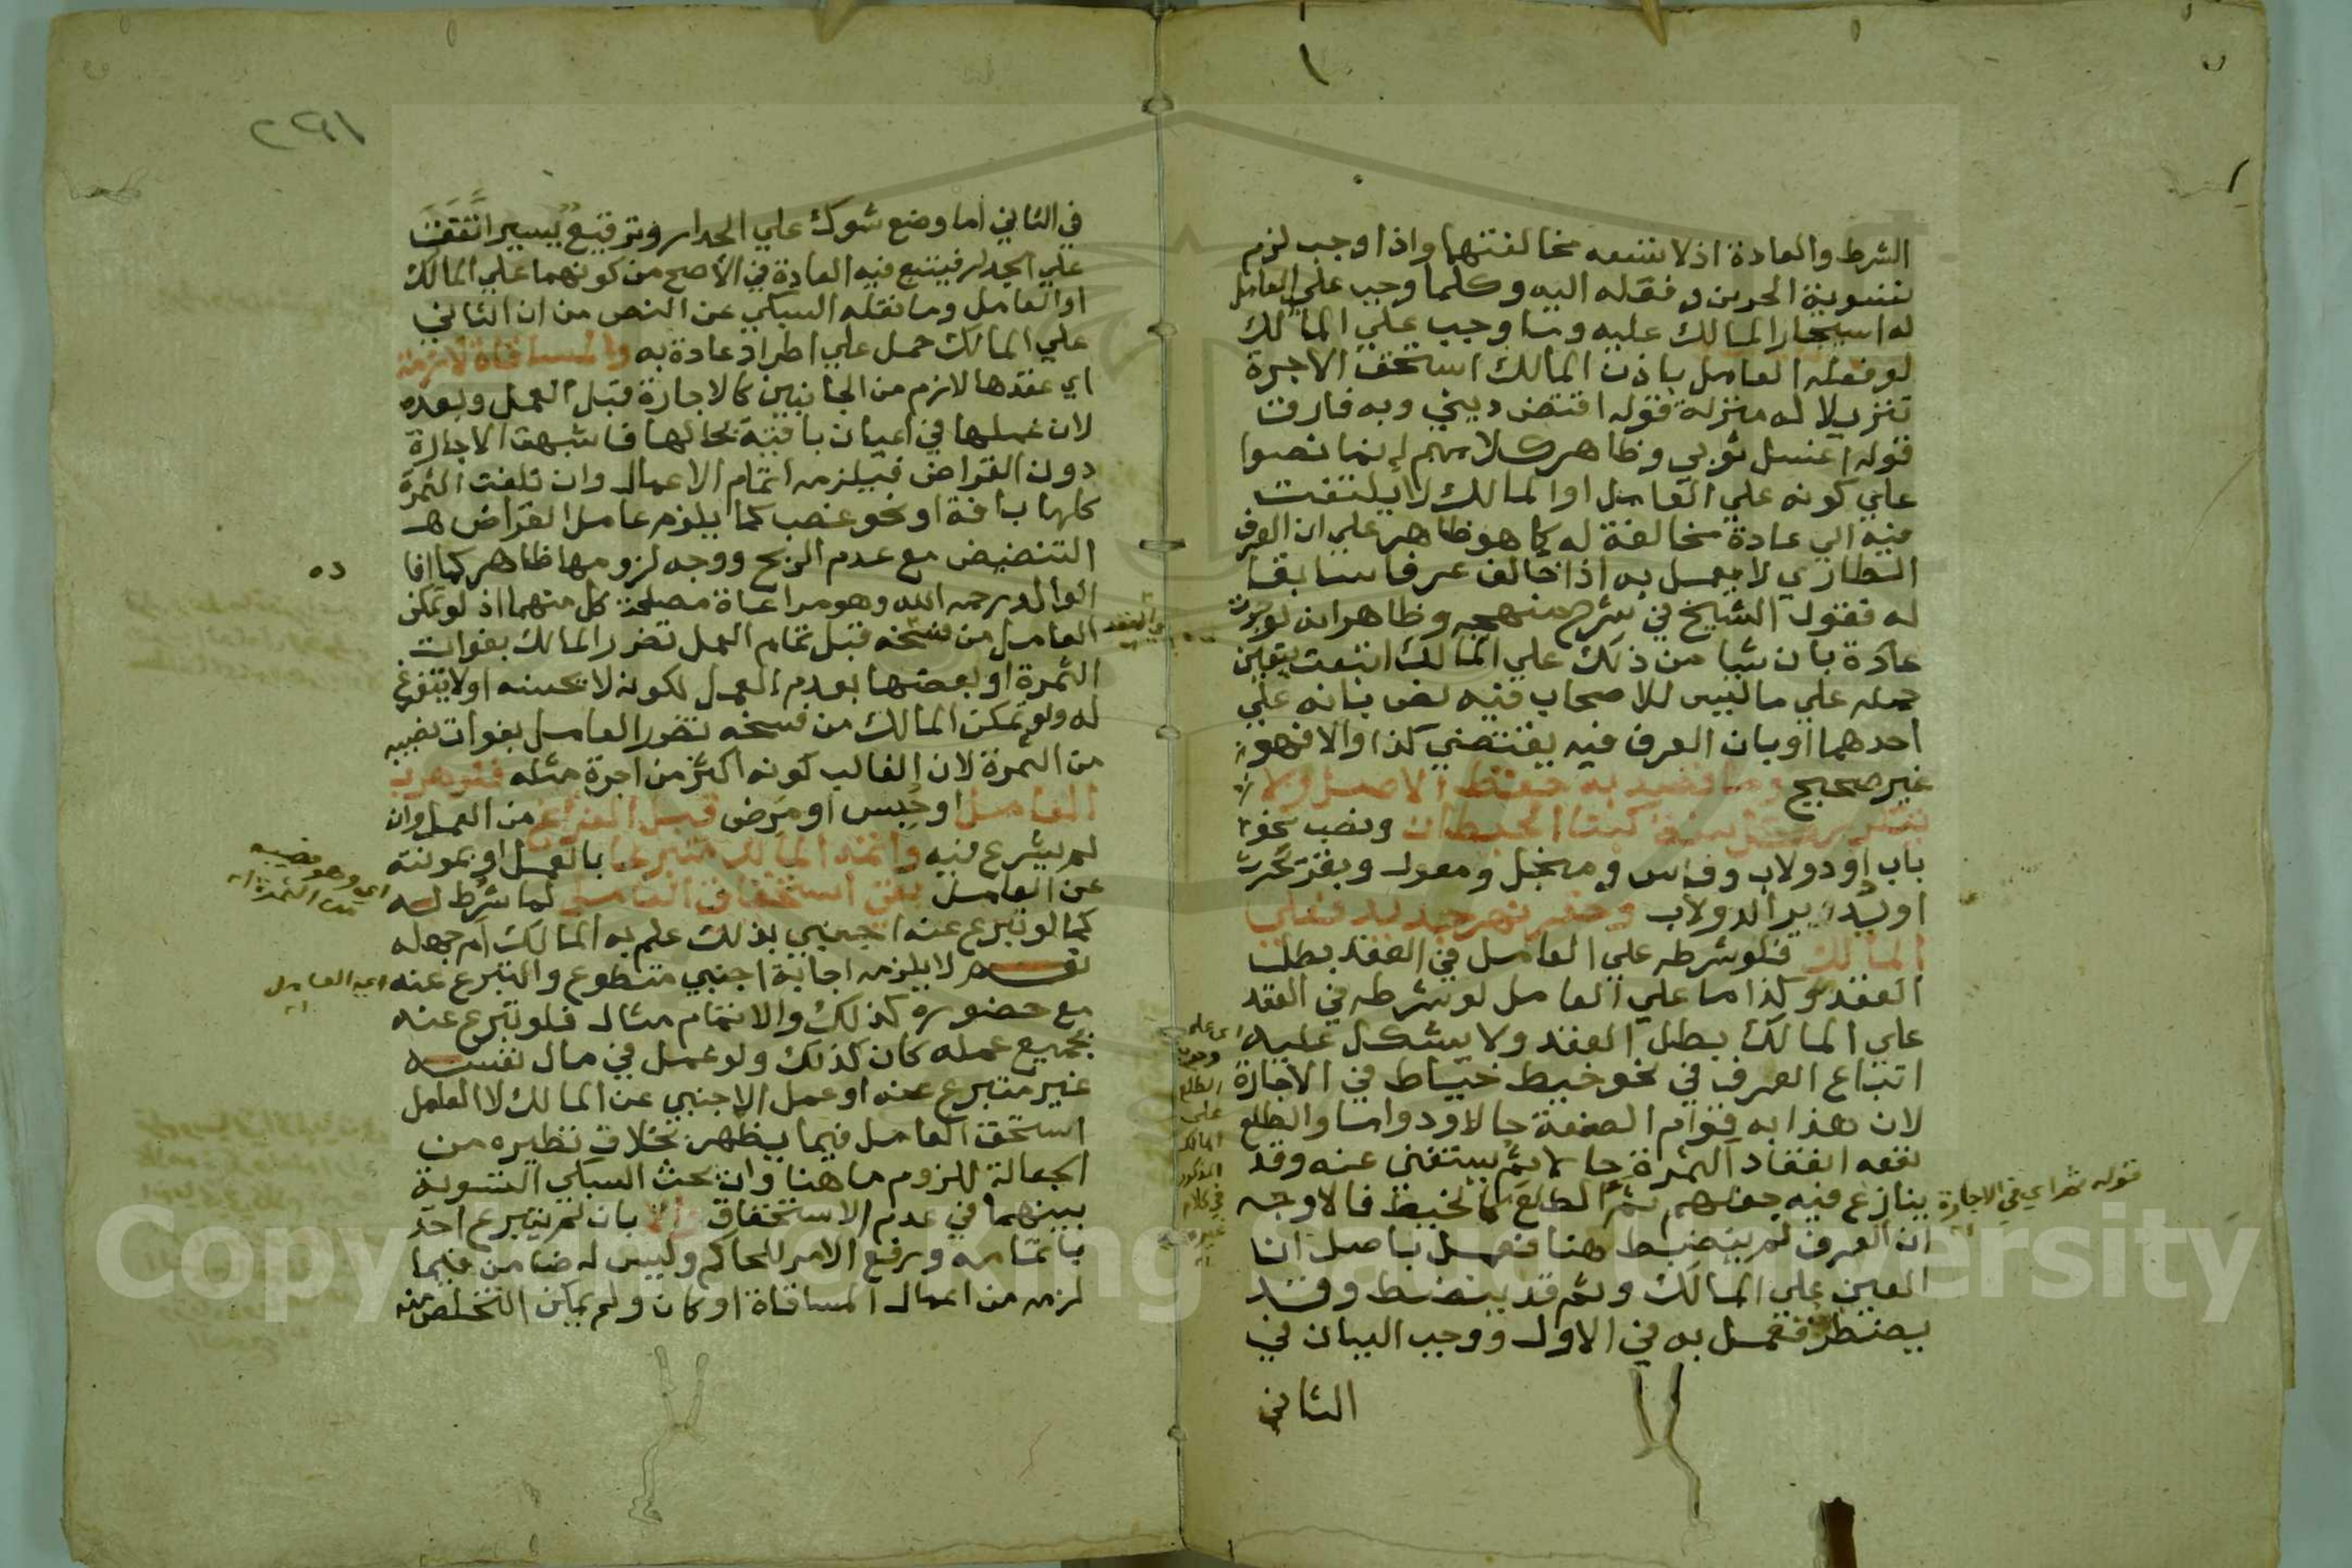 الشرط والعادة اذ لا تسعه مخالفتهما واذا وجب لزم
تسوية الجرين ونقله اليه وكلما وجب علي العامل
له استيجار المالك عليه وما وجب علي المالك
لو فعله العامل باذن المالك استحق الاجرة
تنزيلا له منزلة قوله اقتض ديني وبه فارقت
قوله اغسل ثوبي وظاهر كلامهم ان ما نصوا
علي كونه علي العامل او المالك لا يلتفت
فيه الي عادة مخالفة له كما هو ظاهر علي ان العرف
الطاري لا يعمل به اذا خالف عرفا سابقا
له فقول الشيخ في شرح منهجه وظاهر انه لو جرت
عادة بان شيا من ذلك علي المالك اتبعت يتعين
حمله علي ما ليس للاصحاب فيه نص بانه علي
احدهما او بان العرف فيه يقتضي كذا والا فهو
غير صحيح وما قصد به حفظ الاصل ولا
يتكرر كل سنة كبنا الحيطان ونصب نحو
باب او دولاب وفاس ومنجل ومعول وبقر تحرث
او تدير الدولاب وحفر نهر جديد فعلي
المالك فلو شرطه علي العامل في العقد بطل
العقد وكذا ما علي العامل لو شرطه في العقد
علي المالك بطل العقد ولا يشكل عليه
اتباع العرف في نحو خيط خياط في الاجارة
لان هذا به قوام الصنعة حالا ودواما والطلع
نفعه انعقاد الثمرة حالا ثم يستغني عنه وقد
ينازع فيه جعلهم ثم الطلع كالخيط فالاوجه
ان العرف لم ينضبط هنا فعمل باصل ان
العين علي المالك وثم قد ينضبط وقد
يضطرب فعمل به في الاول ووجب البيان في
الثاني
قوله ثم اي في الاجارة
اي علي
الطلع
علي
المالك
المذكور
في كلام
٢٩١
في الثاني اما وضع شوك علي الجدار وترقيع يسير اتفقت
علي الجدار فيتبع فيه العادة في الاصح من كونهما علي المالك
او العامل وما نقله السبكي عن النص من ان الثاني
علي المالك حمل علي اطراد عادة به والمساقاة لازمة
اي عقدها لازم من الجانبين كالاجارة قبل العمل وبعده
لان عملها في اعيان باقية بحالها فاشبهت الاجارة
دون القراض فيلزمه اتمام الاعمال وان تلفت الثمرة
كلها بافة او نحو غصب كما يلزم عامل القراض
التنضيض مع عدم الربح ووجه لزومها ظاهر كما افا
ده
الوالد رحمه الله وهو مراعاة مصلحة كل منهما اذ لو تمكن
العامل من فسخه قبل تمام العمل تضرر المالك بفوات
الثمرة او بعضها بعدم العمل لكونه لا يحسنه او لا يتفرغ
له ولو تمكن المالك من فسخه تضرر العامل بفوات نصيبه
من الثمرة لان الغالب كونه اكثر من اجرة مثله فلو هرب
العامل او حبس او مرض قبل الفراغ من العمل وان
لم يشرع فيه واتمه المالك متبرعا بالعمل او بمونته
عن العامل بقي استحقاق العامل لما شرط له
كما لو تبرع عنه اجنبي بذلك علم به المالك ام جهله
نعم لا يلزمه اجابة اجنبي متطوع والتبرع عنه
مع حضوره كذلك والاتمام مثال فلو تبرع عنه
بجميع عمله كان كذلك ولو عمل في مال نفسه
غير متبرع عنه او عمل الاجنبي عن المالك لا العامل
استحق العامل فيما يظهر بخلاف نظيره من
الجعالة للزوم ما هنا وان بحث السبكي التسوية
بينهما في عدم الاستحقاق والا بان لم يتبرع احد
باتمامه ورفع الامر للحاكم وليس له ضامن فيما
لزمه من اعمال المساقاة او كان ولم يمكن التخلص منه
اي وهو نصيبه
من الثمرة اه
اي العامل
اه
Copyright © King Saud University